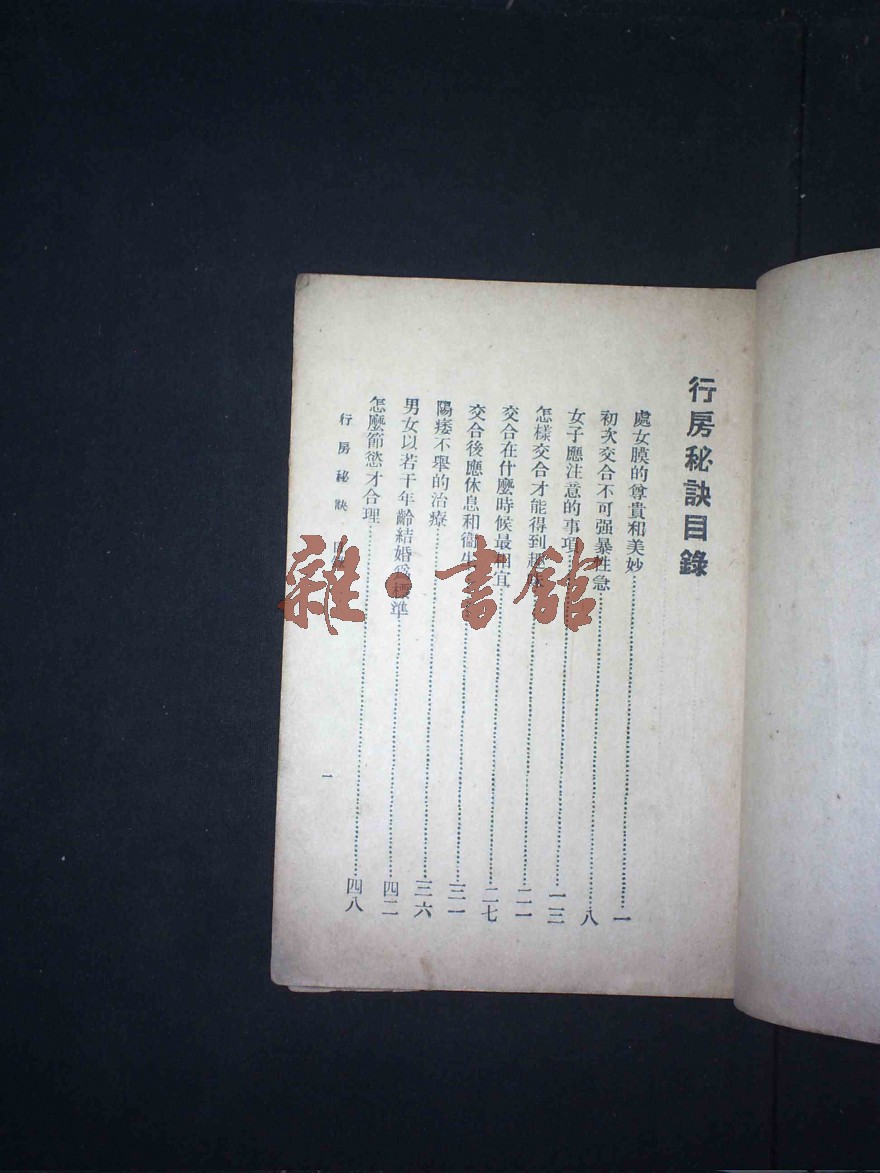 行房秘訣目錄
處女膜的尊貴和美妙……一
初次交合不可强暴性急……八
女子應注意的事項……一三
怎樣交合才能得到趣味……二一
交合在什麼時候最相宜……二七
交合後應休息和衞生……三一
陽痿不舉的治療……三六
男女以若干年齡結婚爲標準……四二
怎麼節慾才合理……四八
行房秘訣 目錄
一
雜·書館